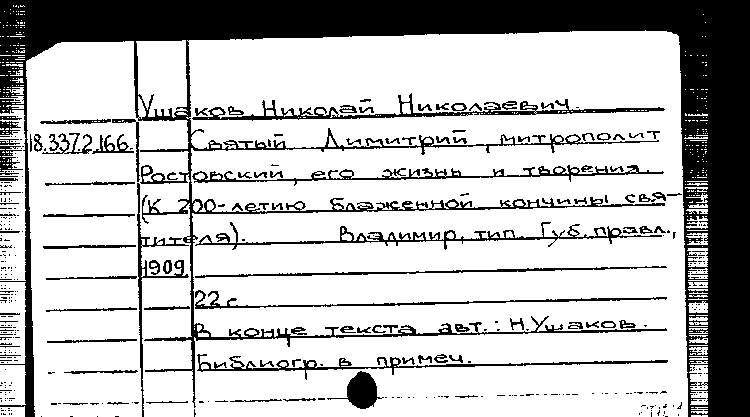 Ушаков Николай Николаевич.
18.337.2.166. Святый Димитрий, митрополит
Ростовский, его жизнь и творения.
(К 200-летию блаженной кончины свя-
тителя). Владимир, тип. Губ. правл.,
1909
22 с.
В конце текста авт.: Н. Ушаков.
Библиогр. в примеч.